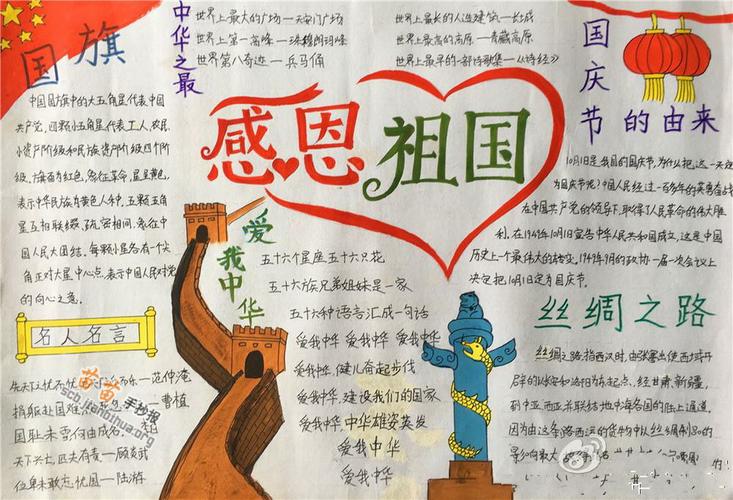 国旗
中国国旗中的大五角星代表中国
共产党，四颗小五角星代表工人，农民，
小资产阶级和民族资产阶级四个阶
级，旗面为红色，象征革命，星呈黄色，
表示中华民族为黄色人种，五颗五角
星互相联缀，疏密相间，象征中
国人民大团结，每颗小星各有一个尖
角正对大星中心点，表示中国人民对党
的向心之意。
中华之最
世界上最大的广场—天安门广场
世界上第一高峰—珠穆朗玛峰
世界第八奇迹—兵马俑
世界上最长的人造建筑—长城
世界上最高的高原—青藏高原
世界上最早的一部诗歌集—《诗经》
感恩祖国
国庆节的由来
10月1日是我国的国庆节，为什么把这一天定
为国庆节呢？中国人民经过一百多年的英勇奋战
在中国共产党的领导下，取得了人民革命的伟大胜
利，在1949年10月1日宣告中华人民共和国成立，这是中国
历史上一个最伟大的转变，1949年9月的政协一届一次会议上
决定把10月1日定为国庆节。
名人名言
范仲淹
捐躯赴国难
曹植
国耻未雪何由成名
天下兴亡，匹夫有责—顾炎武
位卑未敢忘忧国—陆游
爱我中华
五十六个星座五十六只花
五十六族兄弟姐妹是一家
五十六种语言汇成一句话
爱我中华 爱我中华 爱我中华
爱我中华，健儿奋起步伐
爱我中华，建设我们的国家
爱我中华 中华雄姿英发
爱我中华
爱我中华
丝绸之路
丝绸之路，指西汉时，由张骞出使西域开
辟的以长安和洛阳为起点，经甘肃，新疆，
到中亚，西亚，并联结地中海各国的陆上通道，
因为由这条路西运的货物中以丝绸制品的
影响最大
苗苗手抄报
scb.jtanghua.org